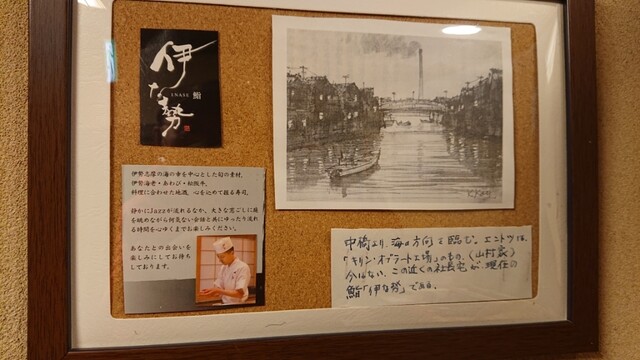 伊
な
勢
INASE 鮨
伊勢志摩の海の幸を中心とした旬の素材、
伊勢海老・あわび・松阪牛。
料理に合わせた地酒、心を込めて握る寿司。
静かにJazzが流れるなか、大きな窓ごしに庭
を眺めながら何気ない会話と共にゆったり流れ
る時間を心ゆくまでお楽しみください。
あなたとの出会いを
楽しみにしてお待ち
しております。
中橋より、海の方向を臨む。エントツは、
「キリン・オブラート工場」のもの。(山村家)
今はない。この近くの社長宅が、現在の
鮨「伊な勢」である。